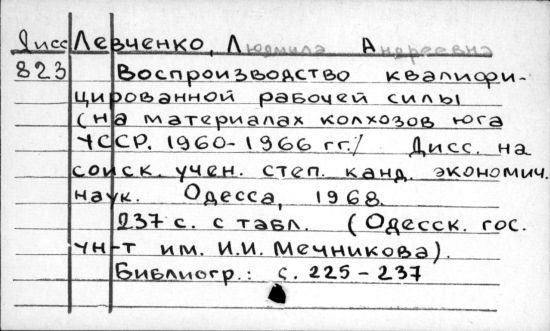 Дисс Левченко, Людмила Андреевна
823 Воспроизводство квалифи-
цированной рабочей силы
(на материалах колхозов юга
УССР. 1960-1966 гг./ Дисс. на
соиск. учен. степ. канд. экономич.
наук. Одесса, 1968.
237 с. с табл. (Одесск. гос.
ун-т им. И.И. Мечникова).
Библиогр.: с. 225-237